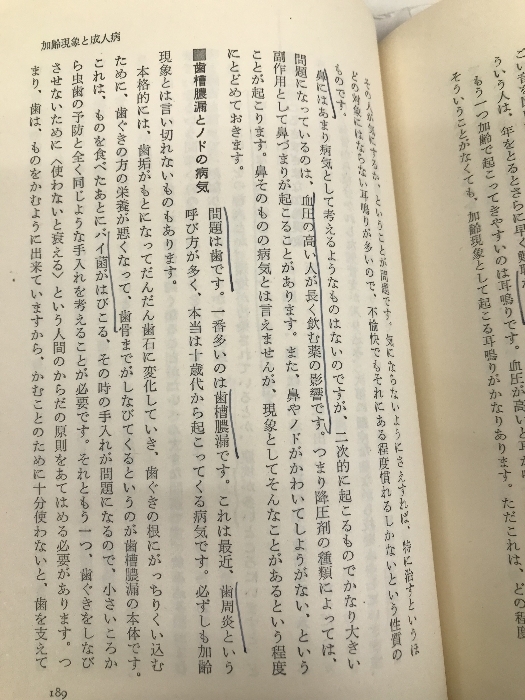 ういう人は、年をとるとさらに早く難聴が
もう一つ加齢で起こってきやすいのは耳鳴りです。血圧が高いと耳が
そういうことがなくても、加齢現象として起こる耳鳴りがかなりあります。ただこれは、どの程度
その人が気にするか、ということが問題です。気にならないようにさえすれば、特に治すというほ
どの対象にはならない耳鳴りが多いので、不愉快でもそれにある程度慣れるしかないという性質の
ものです。
鼻にはあまり病気として考えるようなものはないのですが、二次的に起こるものでかなり大きい
問題になっているのは、血圧の高い人が長く飲む薬の影響です。つまり降圧剤の種類によっては、
副作用として鼻づまりが起こることがあります。また、鼻やノドがかわいてしようがない、という
ことが起こります。鼻そのものの病気とは言えませんが、現象としてそんなことがあるという程度
にとどめておきます。
■歯槽膿漏とノドの病気
問題は歯です。一番多いのは歯槽膿漏です。これは最近、歯周炎という
呼び方が多く、本当は十歳代から起こってくる病気です。必ずしも加齢
現象とは言い切れないものもあります。
本格的には、歯垢がもとになってだんだん歯石に変化していき、歯ぐきの根にがっちりくい込む
ために、歯ぐきの方の栄養が悪くなって、歯骨までがしなびてくるというのが歯槽膿漏の本体です。
これは、ものを食べたあとにバイ菌がはびこる、その時の手入れが問題になるので、小さいころか
ら虫歯の予防と全く同じような手入れを考えることが必要です。それともう一つ、歯ぐきをしなび
させないために〈使わないと衰える〉という人間のからだの原則をあてはめる必要があります。つ
まり、歯は、ものをかむように出来ていますから、かむことのために十分使わないと、歯を支えて
加齢現象と成人病
189